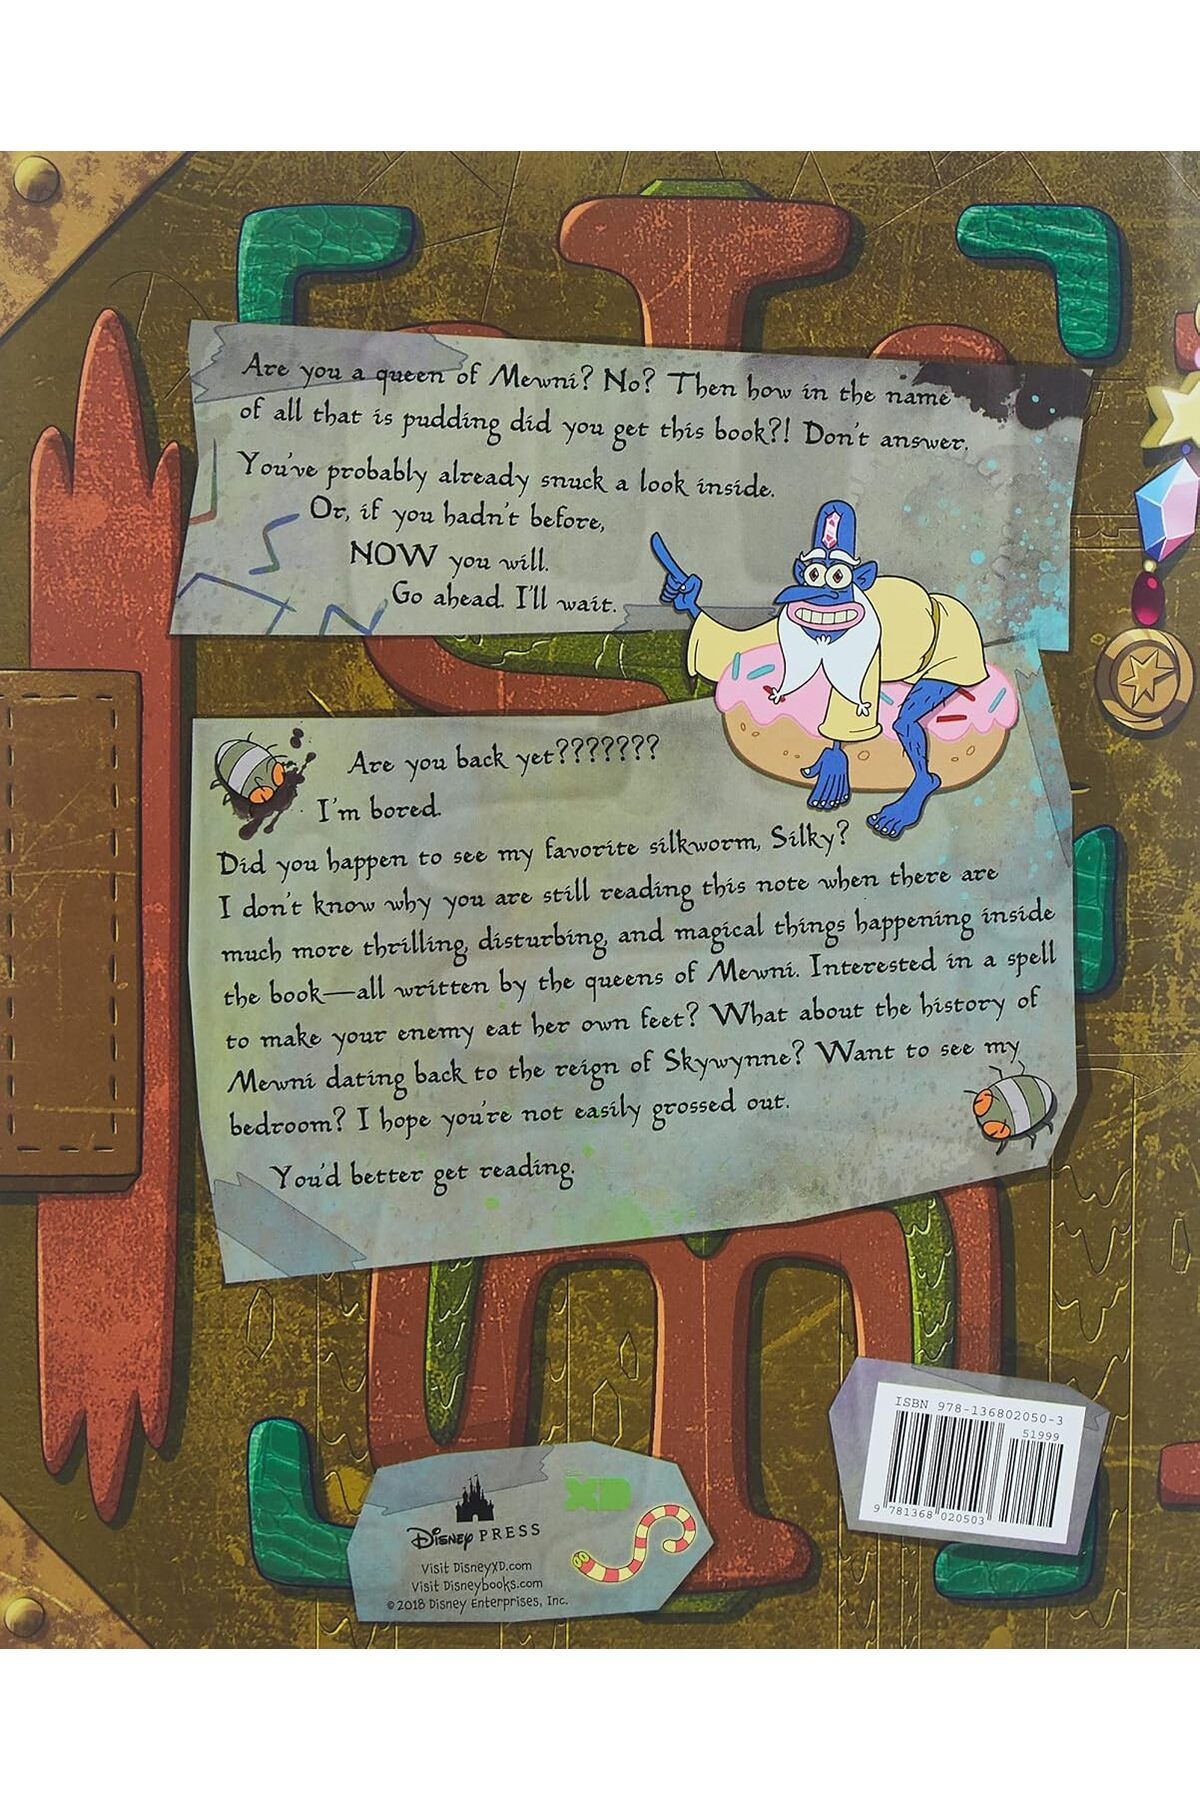 Are you a queen of Mewni? No? Then how in the name
of all that is pudding did you get this book?! Don't answer.
You've probably already snuck a look inside.
Or, if you hadn't before,
NOW you will.
Go ahead. I'll wait.
Are you back yet???????
I'm bored.
Did you happen to see my favorite silkworm, Silky?
I don't know why you are still reading this note when there are
much more thrilling, disturbing, and magical things happening inside
the book—all written by the queens of Mewni. Interested in a spell
to make your enemy eat her own feet? What about the history of
Mewni dating back to the reign of Skywynne? Want to see my
bedroom? I hope you're not easily grossed out.
You'd better get reading.
ISBN 978-136802050-3
51999
9 781368 020503
Disney PRESS
XD
Visit DisneyXD.com
Visit Disneybooks.com
©2018 Disney Enterprises, Inc.